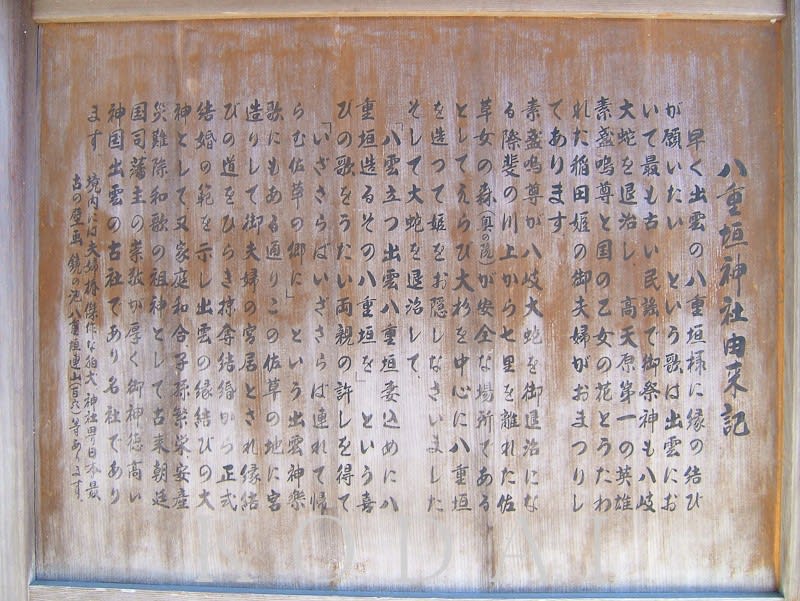 八重垣神社由来記
早く出雲の八重垣様に縁の結び
が願いたい という歌は出雲にお
いて最も古い民謡で御祭神も八岐
大蛇を退治し、高天原第一の英雄
素盞嗚尊と国の乙女の花とうたわ
れた稲田姫の御夫婦がおまつりし
てあります
素盞嗚尊が八岐大蛇を御退治にな
る際斐の川上から七里を離れた佐
草女の森(奥の院)が安全な場所である
としてえらび大杉を中心に八重垣
を造って姫をお隠しなさいました
そして大蛇を退治して、
「八雲立つ出雲八重垣妻込めに八
重垣造るその八重垣を」という喜
びの歌をうたい両親の許しを得て
「いざさらばいざさらば連れて帰
らむ佐草の郷に」という出雲神楽
歌にもある通りこの佐草の地に宮
造りして御夫婦の宮居とされ縁結
びの道をひらき掠奪結婚から正式
結婚の範を示し出雲の縁結びの大
神として又家庭和合子孫繁栄安産
災難除和歌の祖神として古来朝廷
国司藩主の崇敬が厚く御神徳高い
神国出雲の古社であり名社であり
ます、境内には夫婦椿傑作な狛犬 神社界日本最
古の壁画 鏡の池 八重垣連山(百穴)等あります、